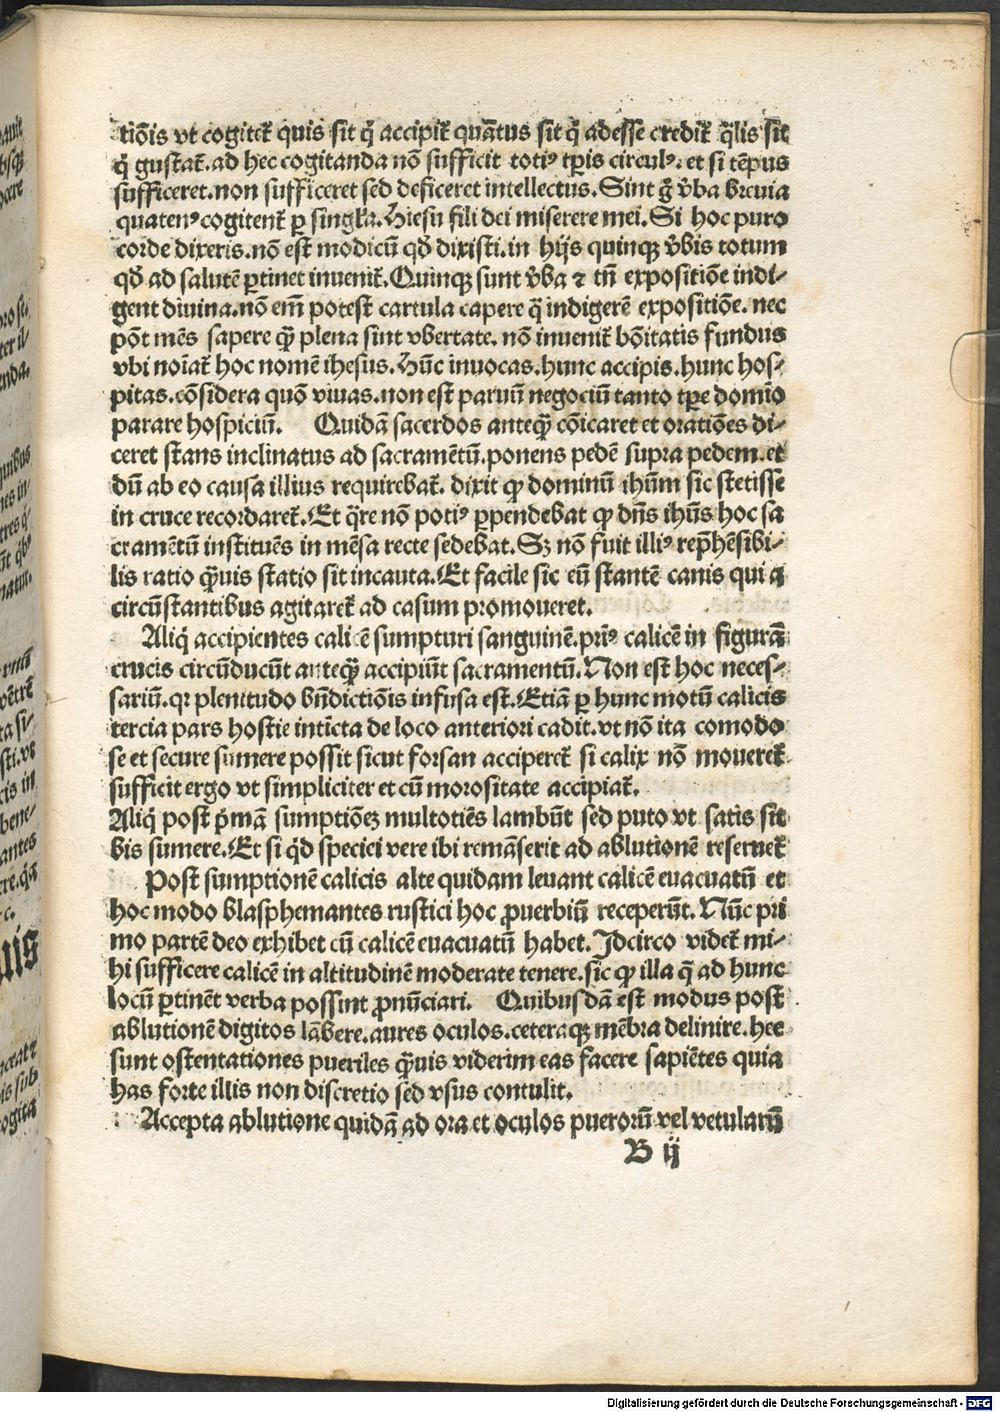 tiōis vt cogitet᷒ quis sit q̄ accipit᷒ quātus sit q̄ adesse credit᷒ q̄lis sit
q̄ gustat᷒. ad hec cogitanda nō sufficit totiꝰ tꝑis circulꝰ. et si tēpus
sufficeret. non sufficeret sed deficeret intellectus. Sint g̊ v̄ba breuia
quatenꝰ cogitent᷒ ꝑ singl̓a. Hiesu fili dei miserere mei. Si hoc puro
corde dixeris. nō est modicū qđ dixisti. in hijs quinqꝫ v̄bis totum
qđ ad salutē ꝑtinet inuenit᷒. Quinqꝫ sunt v̄ba ⁊ tn̄ expositiōe indi⸗
gent diuina. nō em̄ potest cartula capere q̄ indigerē expositiōe. nec
pōt mēs sapere qꝫ̄ plena sint vbertate. nō inuenit᷒ bōitatis fundus
vbi noīat᷒ hoc nomē ihesus. Hūc inuocas. hunc accipis. hunc hos⸗
pitas. cōsidera quō viuas. non est paruū negociū tanto tꝑe domīo
parare hospiciū. Quidā sacerdos anteqꝫ̄ cōicaret et oratiōes di⸗
ceret stans inclinatus ad sacramētū. ponens pedē supra pedem. et
dū ab eo causa illius requirebat᷒. dixit ꝙ dominū ihūm sic stetisse
in cruce recordaret᷒. Et q̄re nō potiꝰ ꝑpendebat ꝙ dn̄s ihūs hoc sa
cramētū instituēs in mēsa recte sedebat. Sꝫ nō fuit illiꝰ rep̄hēsibi⸗
lis ratio qꝫ̄uis statio sit incauta. Et facile sic eū stantē canis qui a
circūstantibus agitaret᷒ ad casum promoueret.
Aliq̄ accipientes calicē sumpturi sanguinē. priꝰ calicē in figurā
crucis circūducūt anteqꝫ̄ accipiūt sacramentū. Non est hoc neces⸗
sariū. qꝛ plenitudo bn̄dictiōis infusa est. Etiā ꝑ hunc motū calicis
tercia pars hostie intīcta de loco anteriori cadit. vt nō ita comodo
se et secure sumere possit sicut forsan acciperet᷒ si calix nō moueret᷒
sufficit ergo vt simpliciter et cū morositate accipiat᷒.
Aliq̄ post p̄mā sumptiōeꝫ multotiēs lambūt sed puto vt satis sit
bis sumere. Et si qͥd speciei vere ibi remāserit ad ablutionē reseruet᷒
Post sumptionē calicis alte quidam leuant calicē euacuatū et
hoc modo blasphemantes rustici hoc ꝓuerbiū receperūt. Nūc pri
mo partē deo exhibet cū calicē euacuatū habet. Jdcirco videt᷒ mi⸗
hi sufficere calicē in altitudinē moderate tenere. sic ꝙ illa q̄ ad hunc
locū ꝑtinēt verba possint ꝓnūciari. Quibusdā est modus post
ablutionē digitos lābere. aures oculos. ceteraqꝫ mēbra delinire. hee
sunt ostentationes pueriles qꝫ̄uis viderim eas facere sapiētes quia
has forte illis non discretio sed vsus contulit.
Accepta ablutione quidā ad ora et oculos puerorū vel vetularū
B ij
Digitalisierung gefördert durch die Deutsche Forschungsgemeinschaft - DFG